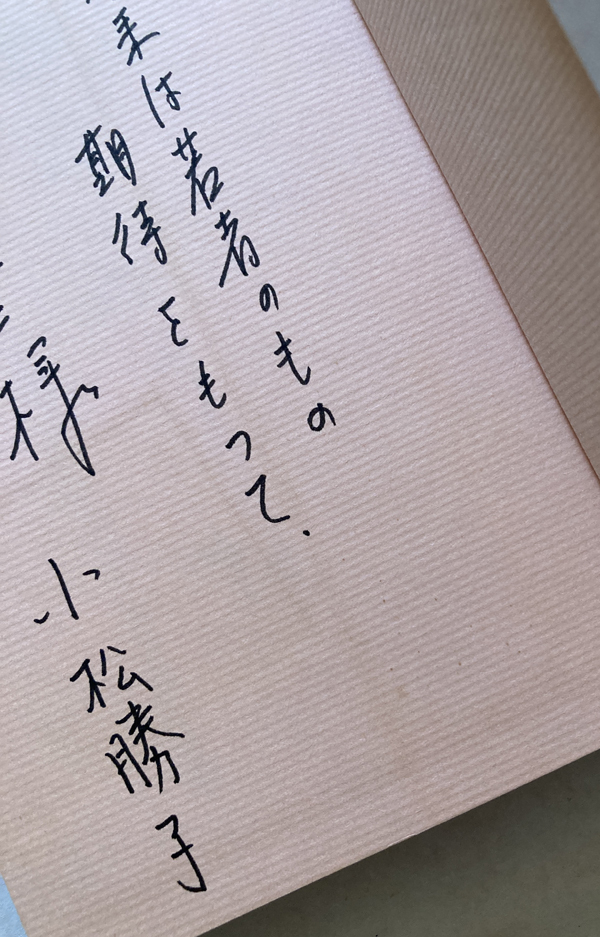 来は若者のもの
期待をもって.
様
小松勝子